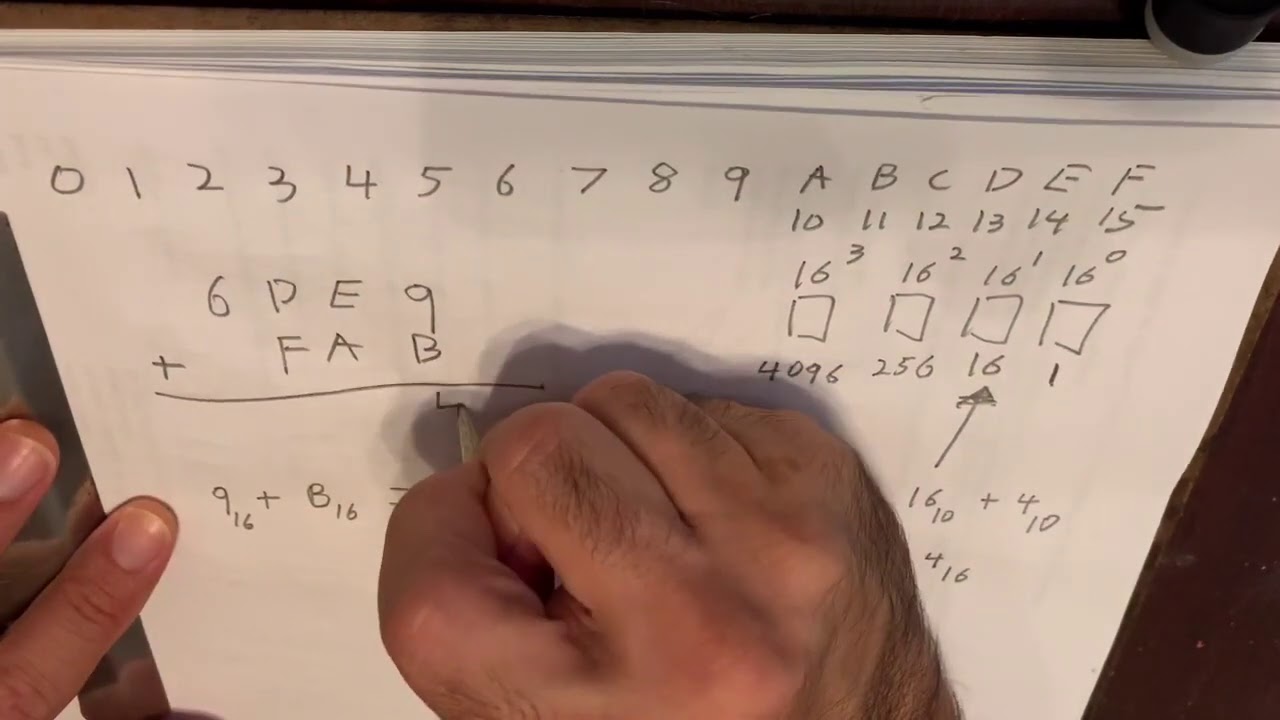 0 1 2 3 4 5 6 7 8 9 A B C D E F
10 11 12 13 14 15
16³ 16² 16¹ 16⁰
6 D E 9
+ F A B
4096 256 16 1
4
9₁₆ + B₁₆ = 16₁₀ + 4₁₀
4₁₆